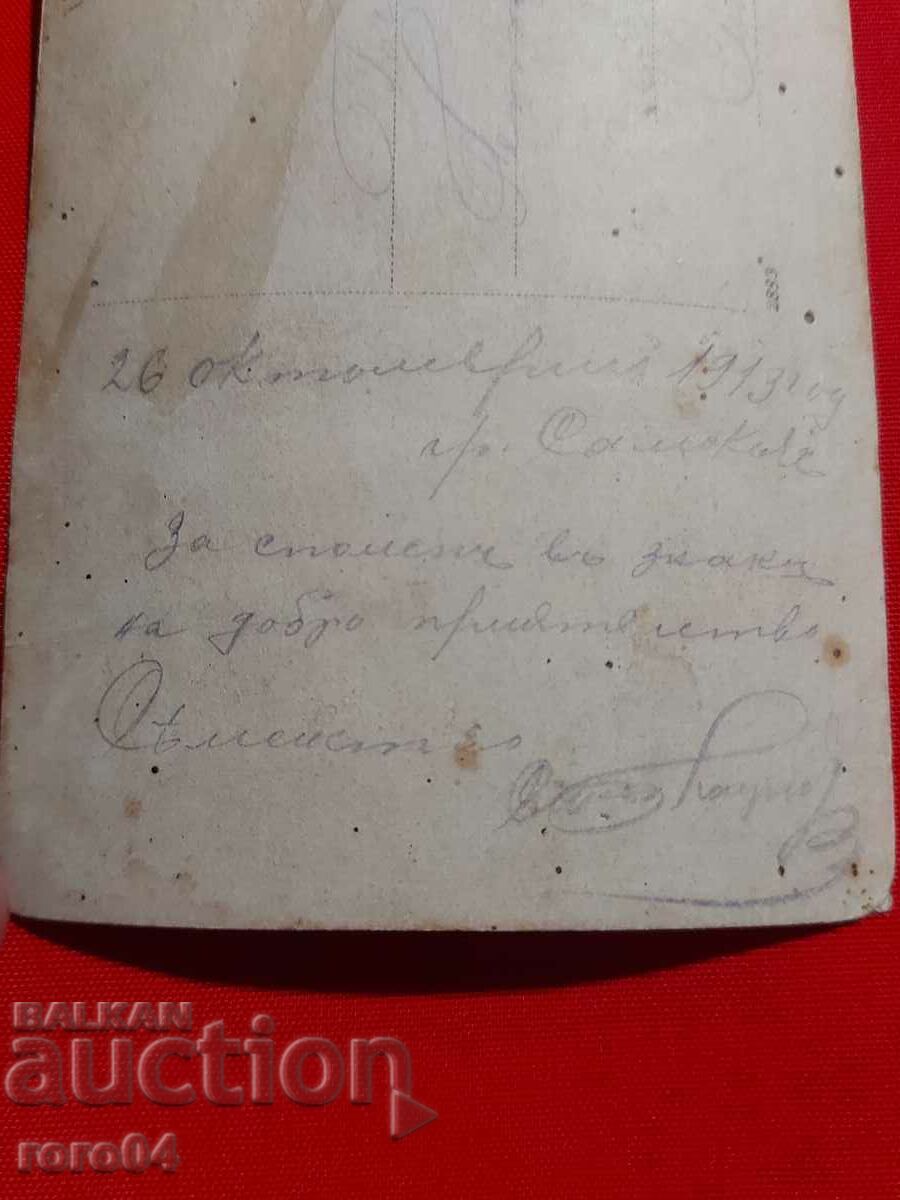 2883
26 октомврий 1913 год
гр. Самоковъ
За споменъ въ знакъ
на добро приятелство
Сѣмейство
BALKAN
auction
roro04